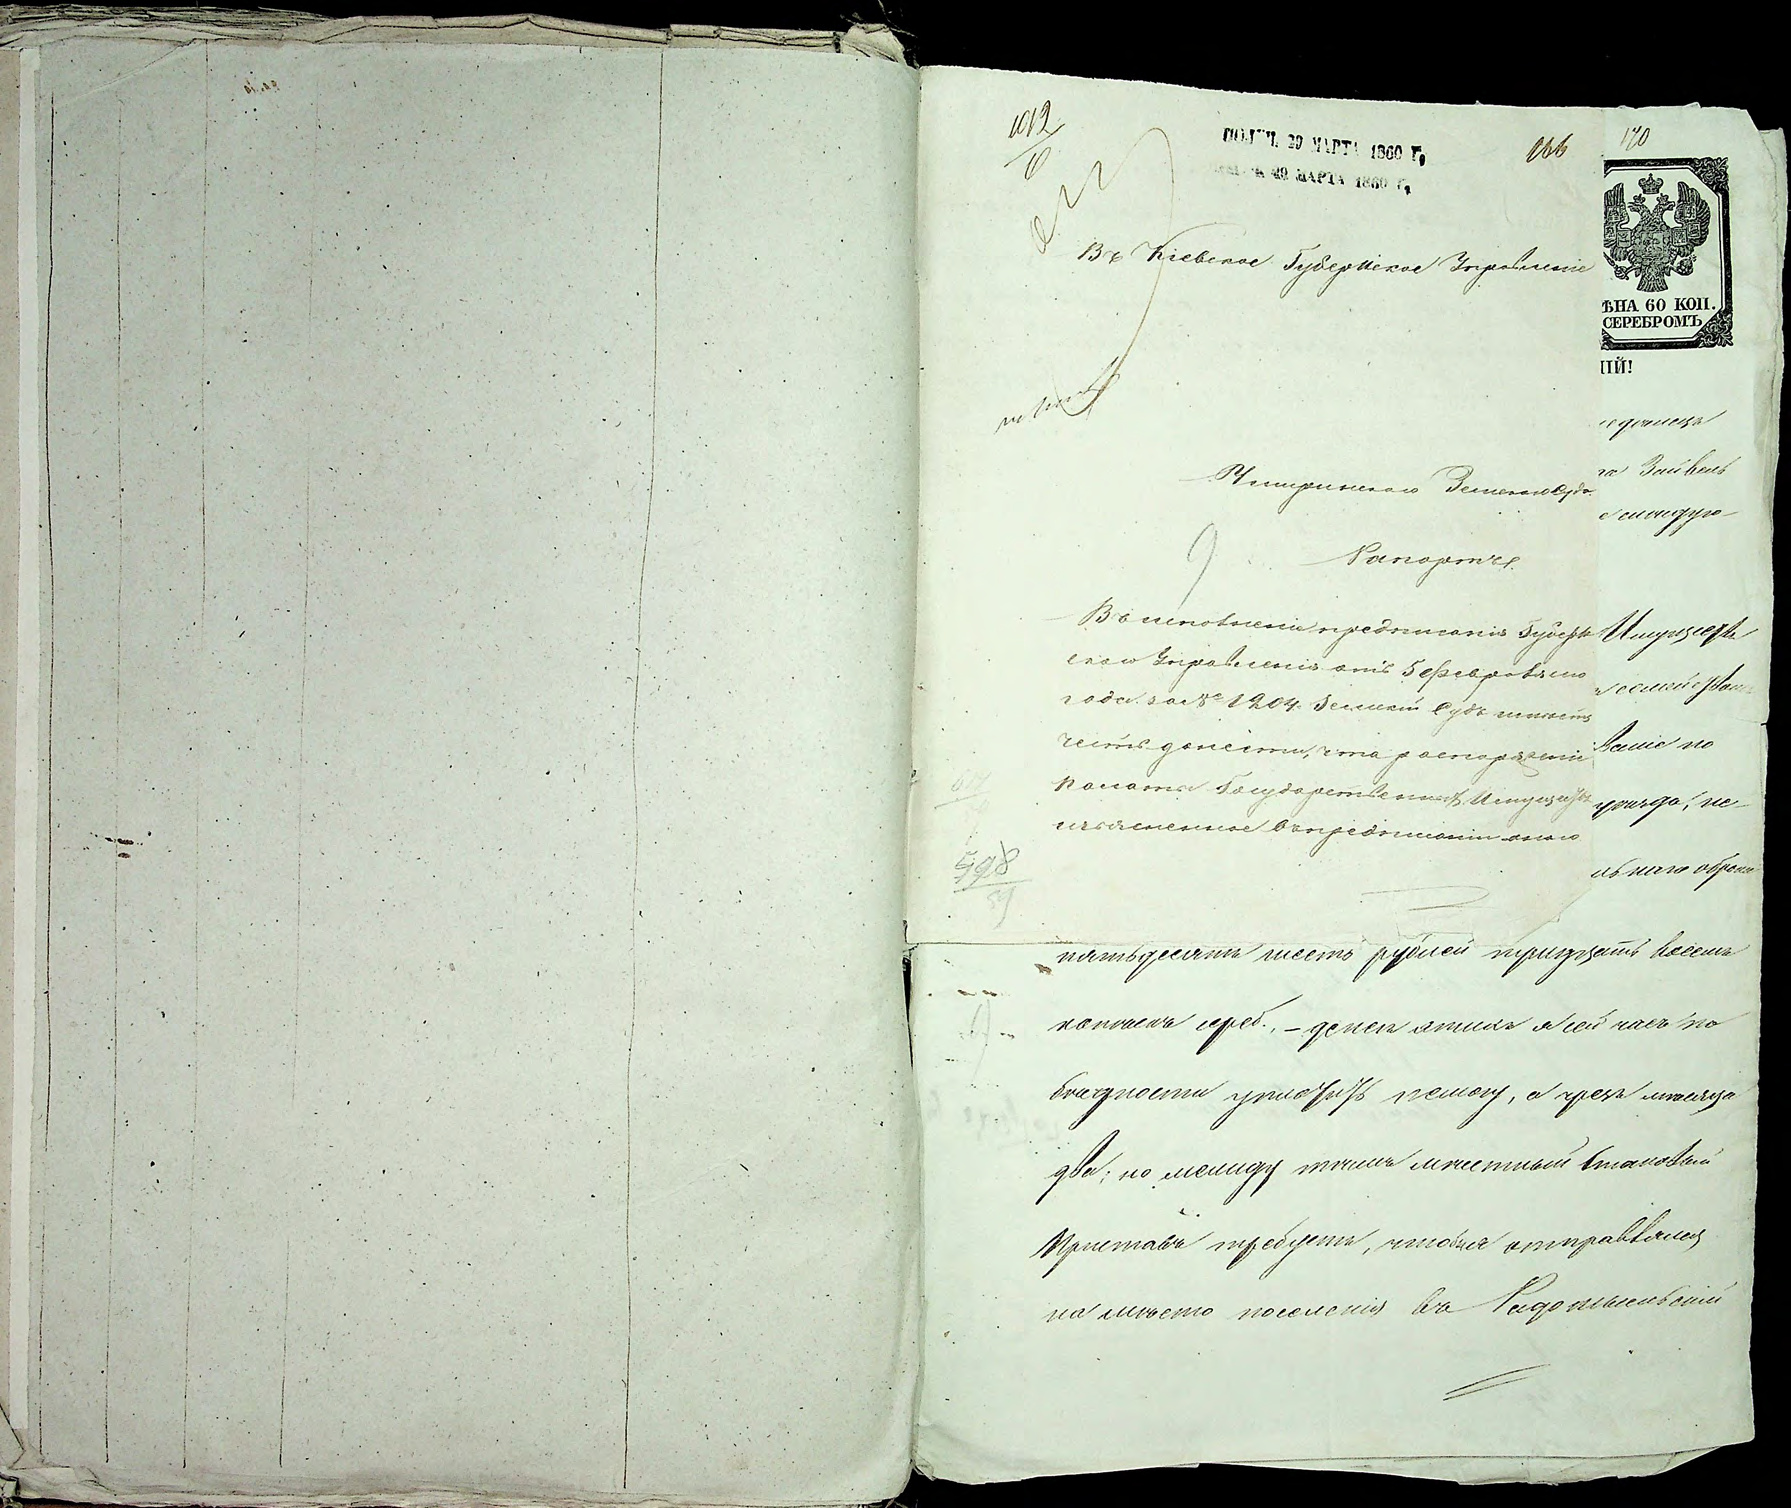 1012
ПОЛУЧ. 29 МАРТА 1860 Г.
29 МАРТА 1860 Г.
166
170
Въ Кіевское Губернское Управленіе
ѢНА 60 КОП.
СЕРЕБРОМЪ
ІІЙ!
Чигиринскаго Земскаго Суда
Рапортъ.
Въ исполненіе предписанія Губерн
скаго Управленія отъ 5 февраля сего
года за № 1204. Земскій Судъ имѣетъ
честь донести, что распоряженіе
Палаты Государственныхъ Имуществъ
изъясненное въ предписаніи оного
598
Зайвель
Имуществ
ваніе по
уѣзда, не-
пятьдесятъ шесть рублей тридцать восемь
копѣекъ сереб., – денегъ этихъ я сей часъ по
бѣдности уплотить немогу, а чрезъ мѣсяца
два; но между тѣмъ мѣстный Становый
Приставъ требуетъ, чтобы я отправлялся
на мѣсто поселенія въ Радомысльскій